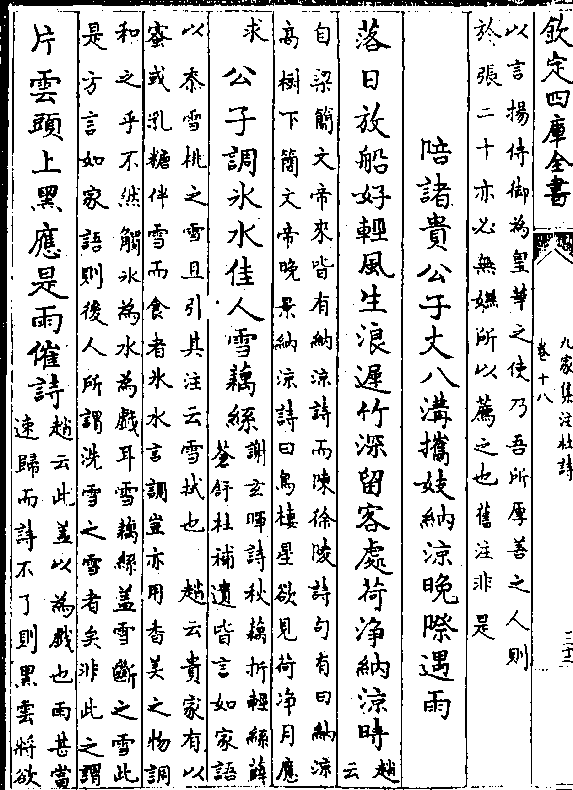 欽定四庫全書
九家集注杜詩
卷十八
以言揚侍御為皇華之使乃吾所厚善之人則
於張二十亦必無嫌所以薦之也舊注非是
陪諸貴公子丈八溝攜妓納涼晚際遇雨
落日放船好輕風生浪遲竹深留客處荷淨納涼時趙云
自梁簡文帝來皆有納涼詩而陳徐陵詩句有曰納涼
高樹下簡文帝晚景納涼詩曰鳥棲星欲見荷淨月應
求
公子調氷水佳人雪藕絲
謝玄暉詩秋藕折輕絲薛
蒼舒杜補遺皆言如家語
以黍雪桃之雪且引其注云雪拭也 趙云貴家有以
蜜或乳糖伴雪而食者氷水言調豈亦用香美之物調
和之乎不然觧氷為水為戲耳雪藕絲盖雪斷之雪此
是方言如家語則後人所謂洗雪之雪者矣非此之謂
片雲頭上黑應是雨催詩
趙云此盖以為戲也雨甚當
速歸而詩不了則黑雲將欲